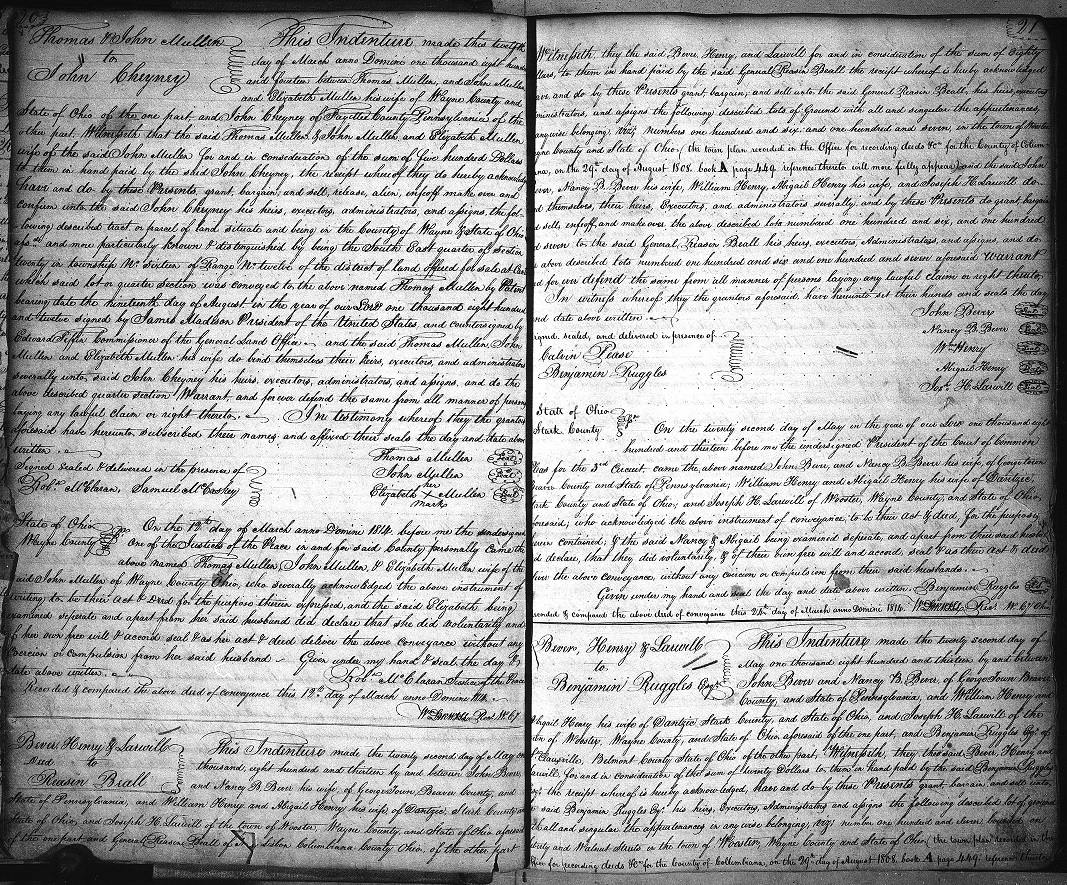 203
Thomas & John Mullen
to
John Cheyney
This Indenture made this twelfth
day of March anno Domino one thousand eight hundred
and fourteen between Thomas Mullen, and John Mullen
and Elizabeth Mullen his wife of Wayne County and
State of Ohio of the one part, and John Cheyney of Fayette County Pennsylvania of the
other part, Witnesseth that the said Thomas Mullen & John Mullen and Elizabeth Mullen
wife of the said John Mullen for and in consideration of the sum of five hundred Dollars
to them in hand paid by the said John Cheyney, the receipt whereof they do hereby acknowledge
have and do by these Presents, grant, bargain, and sell, release, alien, enfeoff make over and
confirm unto the said John Cheyney his heirs, executors, administrators, and assigns, the fol-
lowing described tract or parcel of land situate and being in the County of Wayne & State of Ohio
afsd and more particularly known & distinguished by being the South East quarter of Section
twenty in township No sixteen of Range No twelve of the district of land offered for sale at
which said lot or quarter section was conveyed to the above named Thomas Mullen by Patent
bearing date the nineteenth day of August in the year of our Lord one thousand eight hundred
and twelve signed by James Madison President of the United States, and countersigned by
Edward Tiffin Commissioner of the General Land Office and the said Thomas Mullen, John
Mullen and Elizabeth Mullen his wife do bind themselves their heirs, executors, and administrators
severally unto said John Cheyney his heirs, executors, administrators, and assigns, and do the
above described quarter section Warrant, and forever defend the same from all manner of persons
laying any lawful claim or right thereto. In testimony whereof they the grantors
aforesaid have hereunto subscribed their names and affixed their seals the day and date above
written
Signed Sealed & delivered in the presence of
Thomas Mullen Seal
John Mullen Seal
Robt McClaran, Samuel McCoskey
her
Elizabeth X Mullen Seal
mark
State of Ohio
Wayne County
On the 12th day of March anno Domini 1814 before me the undersigned
One of the Justices of the Peace in and for said County personally came the
above named Thomas Mullen, John Mullen, & Elizabeth Mullen wife of the
said John Mullen of Wayne County Ohio, who severally acknowledged the above instrument of
writing to be their Act & Deed for the purpose therein expressed, and the said Elizabeth being
examined seperate and apart from her said husband did declare that she did voluntarily and
of her own free will & accord seal & as her act & deed deliver the above conveyance without any
coercion or compulsion from her said husband Given under my hand & seal the day &
date above written.
Robt McClaran Justice of the Peace
Recorded & compared the above deed of conveyance this 12th day of March anno Domine 1814
Rec. W. Cy
Bever Henry & Larwill
Deed to
Reasin Beall
This Indenture made the twenty second day of May one
thousand, eight hundred and thirteen by and between John Bever,
and Nancy B. Bever his wife, of George Town, Beaver County, and
State of Pennsylvania, and William Henry and Abigail Henry his wife, of Dantzic, Stark County
State of Ohio, and Joseph H. Larwill of the town of Wooster, Wayne County, and State of Ohio aforesaid
of the one part and General Reasin Beall of New Lisbon Columbiana County Ohio, of the other part
21
Witnesseth, they the said Bever, Henry, and Larwill for and in consideration of the sum of Eighty
Dollars, to them in hand paid by the said General Reasin Beall the receipt whereof is hereby acknowledged
have and do by these Presents grant, bargain, and sell unto the said General Reasin Beall, his heirs, executors
administrators, and assigns the following described lots of Ground with all and singular the appurtenances,
anywise belonging, vizt, numbers one hundred and six, and one hundred and seven, in the town of Wooster
Wayne County and State of Ohio, (the town plan recorded in the Office for recording deeds &c for the County of Colum-
biana, on the 29th day of August 1808. book A page 449 reference thereto will more fully appear) and the said John
Bever, Nancy B. Bever his wife, William Henry, Abigail Henry his wife, and Joseph H. Larwill do
bind themselves, their heirs, Executors, and administrators severally, and by these Presents do grant, bargain,
and sell, enfeoff, and make over the above described lots numbered one hundred and six, and one hundred
and seven to the said General Reasin Beall his heirs, executors, Administrators, and assigns, and do
the above described lots numbered one hundred and six and one hundred and seven aforesaid warrant
and for ever defend the same from all manner of persons laying any lawful claim or right thereto,
In witness whereof they the grantors aforesaid, have hereunto set their hands and seals the day
and date above written
Signed, sealed, and delivered in presence of
John Bever Seal
Nancy B. Bever Seal
Calvin Pease
Wm Henry Seal
Benjamin Ruggles
Abigail Henry Seal
Jos. H. Larwill Seal
State of Ohio
Stark County
On the twenty second day of May in the year of our Lord one thousand eight
hundred and thirteen before me the undersigned President of the Court of Common
Pleas for the 3rd Circuit, came the above named John Bever, and Nancy B. Bever his wife of Georgetown
Beaver County and State of Pennsylvania, William Henry and Abigail Henry his wife of Dantzic,
Stark County and State of Ohio; and Joseph H. Larwill of Wooster, Wayne County and State of Ohio,
aforesaid, who acknowledged the above instrument of conveyance, to be their act & deed, for the purposes
therein contained; & the said Nancy & Abigail being examined seperate, and apart from their said husbands
did declare, that they did voluntarily, & of their own free will and accord, seal & as their Act & deed
deliver the above conveyance, without any coercion or compulsion from their said husbands.
Given under my hand and seal the day and date above written. Benjamin Ruggles Seal
Recorded & compared the above deed of conveyance this 28th day of March anno Domini 1814. Recr W. Cy Ohio
Bever, Henry & Larwill
to
Benjamin Ruggles Esqr
This Indenture made the twenty second day of
May one thousand eight hundred and thirteen by and between
John Bever and Nancy B. Bever, of George Town Beaver
County, and State of Pennsylvania, and William Henry and
Abigail Henry his wife of Dantzic Stark County, and State of Ohio, and Joseph H. Larwill of the
town of Wooster, Wayne County, and State of Ohio aforesaid of the one part, and Benjamin Ruggles Esqr of
St Clairsville, Belmont County State of Ohio of the other part, Witnesseth, they the said Bever, Henry and
Larwill for and in consideration of the sum of twenty Dollars to them in hand paid by the said Benjamin Ruggles
Esqr the receipt whereof is hereby acknowledged, have and do by these Presents grant, bargain, and sell unto
the said Benjamin Ruggles Esqr his heirs, Executors, Administrators and assigns the following described lot of ground
with all and singular the appurtenances in any wise belonging, vizt, number one hundred and eleven bounded on
Liberty and Walnut Streets in the town of Wooster Wayne County and State of Ohio, (the town plan recorded in the
Office for recording deeds &c for the County of Columbiana, on the 29th day of August 1808, book A page 449. reference thereto